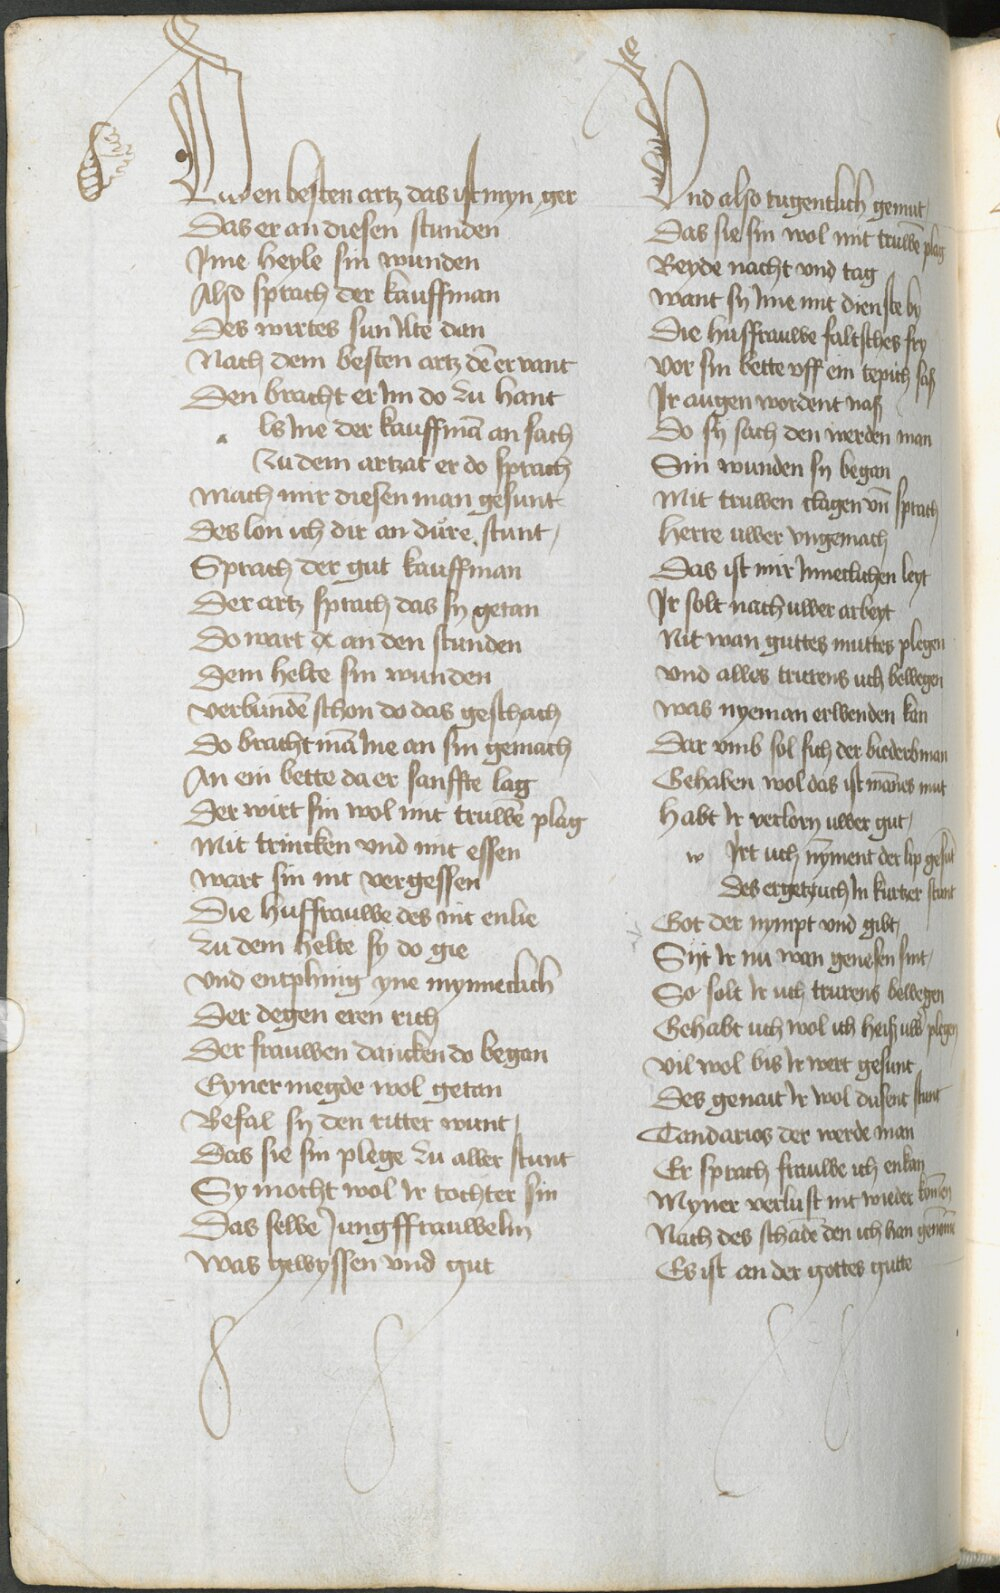 Zu den besten artz das ist myn ger
Das er an diesen stunden
Jme heyle sin wunden
Also sprach der kauffman
Des wirtes sun ylte dan
Nach dem besten artz dē er vant
Den bracht er im do zu hant
a ls jne der kauffmā an sach
Zu dem artzat er do sprach
Mach mir diesen man gesunt
Des lon ich dir an dure stunt
Sprach der gut kauffman
Der artz sprach das sy getan
Do wart an den stunden
Dem helte sin wunden
Verbundē schon do das geschach
Do bracht mā jne an sin gemach
An ein bette da er sanffte lag
Der wirt sin wol mit truwē plag
Mit trincken vnd mit essen
Wart sin nit vergessen
Die husfrauwe des nit enlie
Zu dem helte sy do gie
Vnd entphing yne mynneclich
Der degen eren rich
Der frauwen dancken do began
Eyner megde wol getan
Befal sy den ritter wunt
Das sie sin plege zu aller stunt
Sy mocht wol ir tochter sin
Das selbe jungffrauwelin
Was gewyssen vnd gut
Vnd also tugentlich gemut
Das sie sin wol mit truwē plag
Beyde nacht vnd tag
Want sy jme mit dienste by
Die husfrauwe faltsches fry
Vor sin bette vff ein tepich saß
Jr augen wordent naß
Do sy sach den werden man
Sin wunden sy began
Mit truwen clagen vn̄ sprach
Herre uwer vngemach
Das ist mir jnneclichen leyt
Jr solt nach uwer arbeyt
Nit wan guttes muttes plegen
Vnd alles trurens uch bewegen
Was nyeman erwenden kan
Dar vmb sol sich der biederbman
Gehaben wol das ist mānes mut
Habt ir verlorn uwer gut
w jrt uch nyment der lip gesunt
Des ergetzt uch in kurtzer stunt
Got der nympt vnd gibt
Syt ir nu wan genesen sint
So solt ir uch trurens bewegen
Gehabt uch wol ich heiß uwer plegen
Vil wol bis ir wert gesunt
Des genait ir wol dusent stunt
Tandarios der werde man
Er sprach frauwe ich enkan
Myner verlust nit wieder komen
Nach des schadē den ich han genomē
Es ist an der gottes gutte